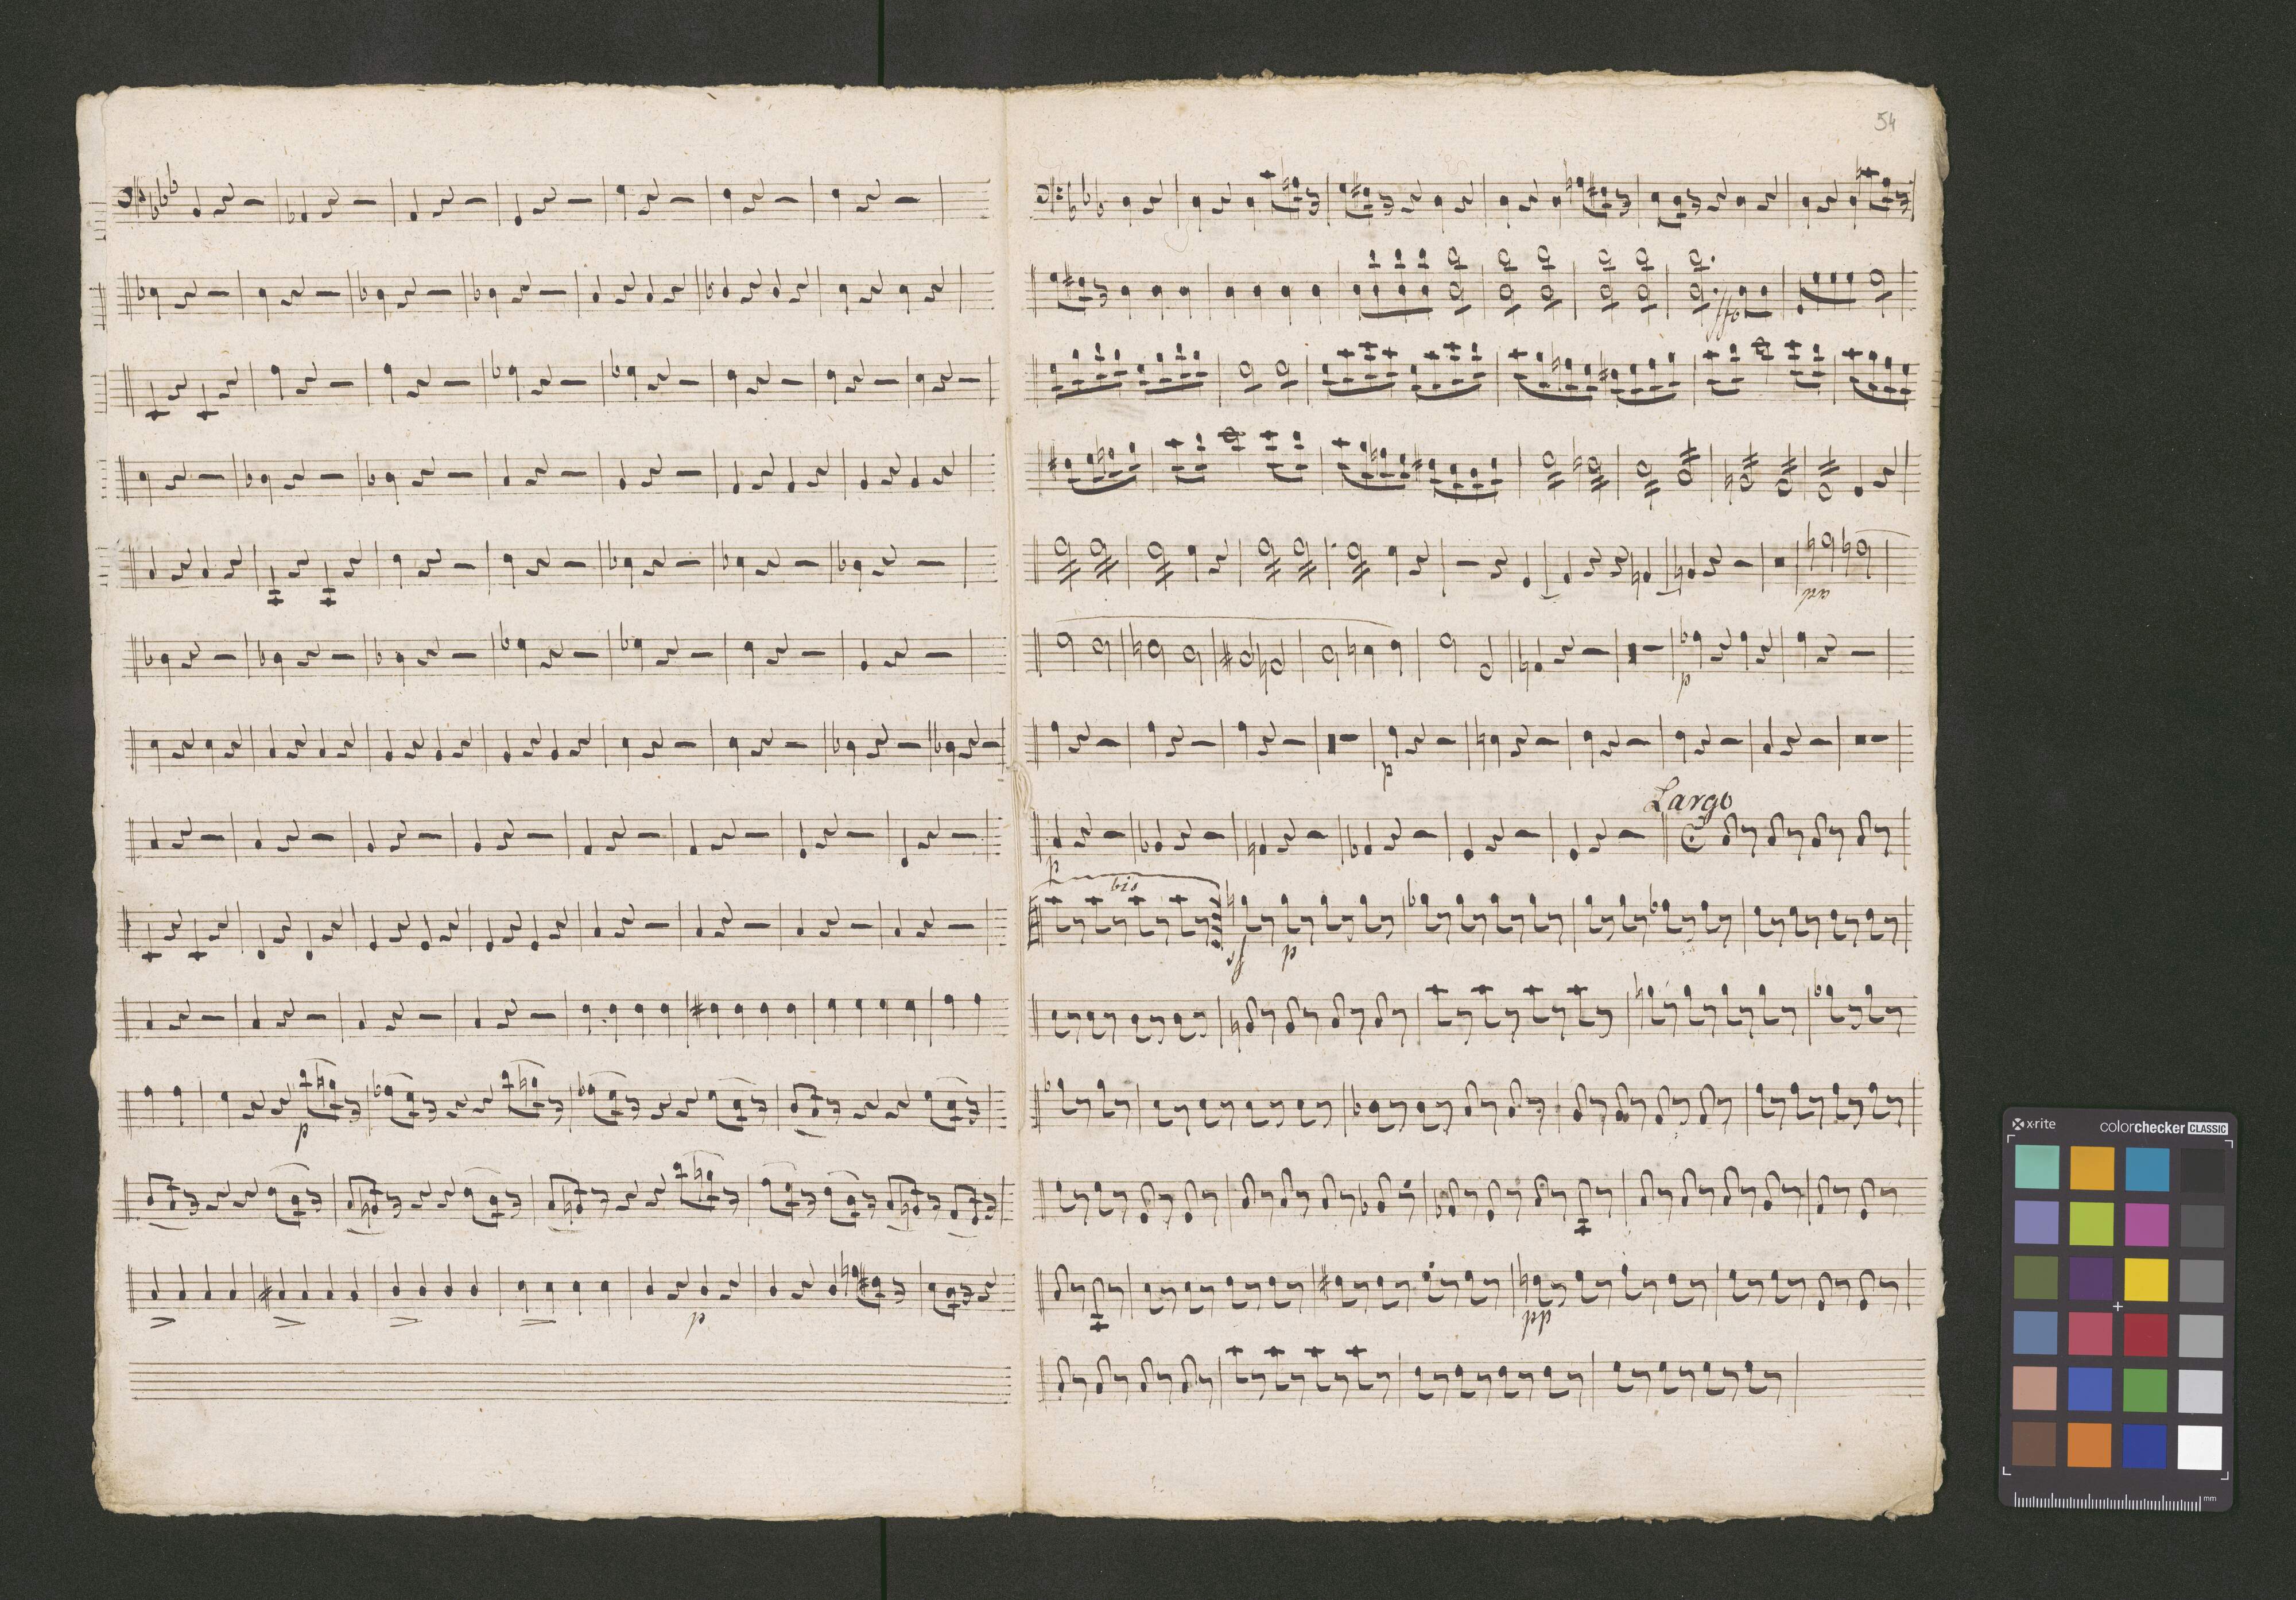 54
ffo
pp
p
p
Largo
p
bis
sf p
p
p
pp
x-rite
colorchecker CLASSIC
mm